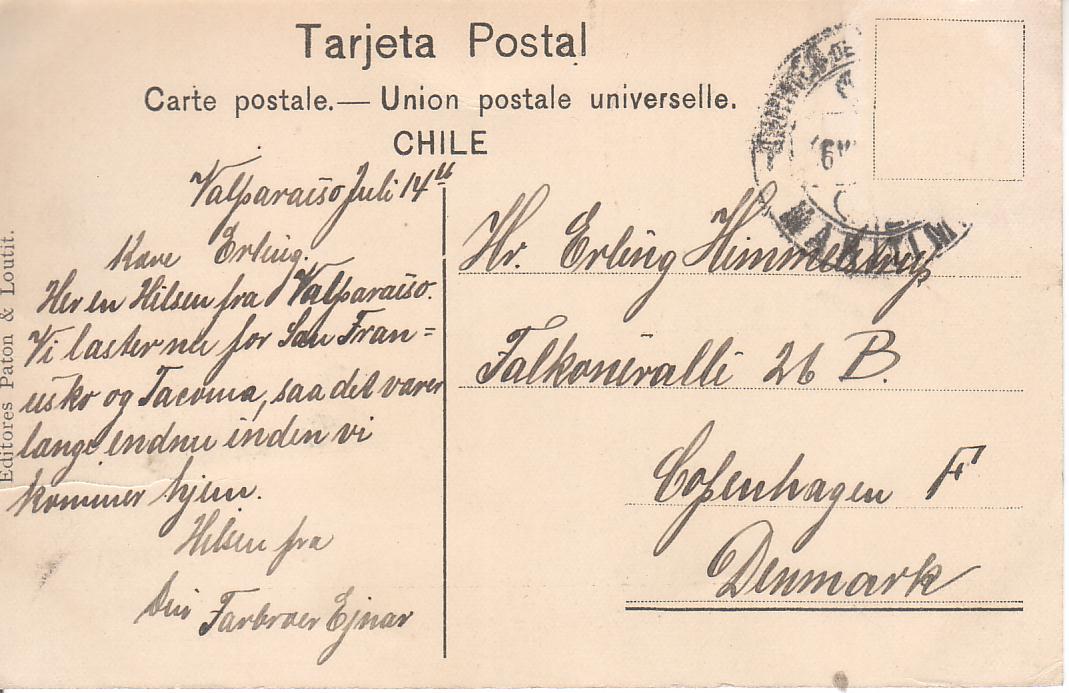 Tarjeta Postal
Carte postale.— Union postale universelle.
CHILE
Valparaiso Juli 14
Kære Erling.
Her en Hilsen fra Valparaiso.
Vi laster nu for San Fran=
cisko og Tacoma, saa det varer
lange endnu inden vi
kommer hjem.
Hilsen fra
Din Farbroer Ejnar
Hr. Erling
Falkoneralli 26 B.
Copenhagen F
Denmark
Editores Paton & Loutit.